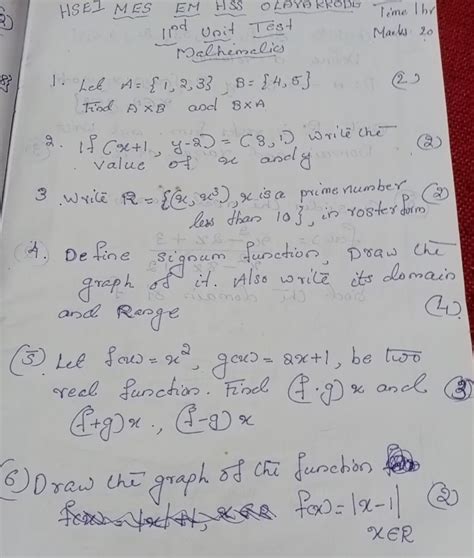 HSEI MES EM HSS OLAVAKKODE Time 1hr
IInd Unit Test Marks 20
Mathematics
1. Let A = {1, 2, 3}, B = {4, 5} (2)
Find A×B and B×A
2. If (x+1, y-2) = (3, 1) write the
value of x and y (2)
3. Write R = {(x, x³) x is a prime number
less than 10}, in roster form (2)
4. Define signum function, Draw the
graph of it. Also write its domain
and Range (4)
(5) Let f(x) = x², g(x) = 2x+1, be two
real function. Find (f·g)x and (3)
(f+g)x., (f-g)x
(6) Draw the graph of the function
f(x) = |x-1| (2)
x∈R